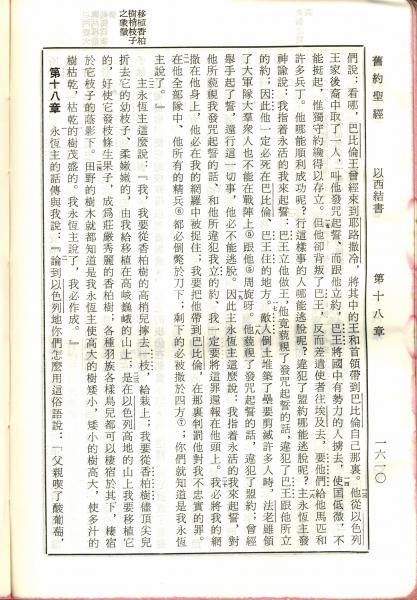 舊約聖經　以西結書　第十八章　一六一〇
們說：看哪，巴比倫王曾經來到耶路撒冷，將其中的王和首領帶到巴比倫自己那裏。他從以色列
王家後裔中取了一人，叫他發咒起誓，而跟他立約，巴王將國中有勢力的人擄去，使國低微，不
能挺起，惟獨守約纔得以存立。但他卻背叛了巴王，反而差遣使者往埃及去，要他們給他馬匹和
許多兵丁。他哪能順利成功呢？行這樣事的人哪能逃脫呢？違犯了盟約哪能逃脫呢？主永恆主發
神諭說：我指着永活的我來起誓：巴王立他做王，他竟藐視了發咒起誓的話，違犯了巴王跟他所立
的約；因此他一定必死在巴比倫、巴王住的地方。敵人倒土堆築了壘要剪滅許多人時，法老雖領
了大軍隊大羣衆人也不能在戰陣上⑧跟他⑨周旋呀。他藐視了發咒起誓的話，違犯了盟約；曾經
舉手起了誓，還行這一切事，他必不能逃脫。因此主永恆主這麼說：我指着永活的我來起誓，對
他所藐視我發咒起誓的話、和他所違犯我立的約、我一定要將這罪還報在他頭上。我必將我的網
撒在他身上，他必在我的網羅中被捉住；我要把他帶到巴比倫，在那裏判罰他對我不忠實的罪。
在他全部隊中、他所有的精兵⑥都必倒斃於刀下；剩下的必被撒於四方⑦；你們就知道是我永恆
主說了。』
移植香柏
樹梢枝子
之象徵
主永恆主這麼說：『我、我要從香柏樹的高梢兒擰去一枝，給栽上；我要從香柏樹儘頂尖兒
折去它的幼枝子，柔嫩嫩的，由我給移植在高峻巍峨的山上；是在以色列高地的山上我要移植它
的，好使它發枝條生果子，成爲莊嚴秀麗的香柏樹，各種羽族各樣鳥兒都可以棲宿於其下，棲宿
於它枝子的蔭影下。田野的樹木就都知道是我永恆主使高大的樹矮小，矮小的樹高大，使多汁的
樹枯乾，枯乾的樹茂盛的。我永恆主說了，我必作成。』
第十八章　永恆主的話傳與我說：『論到以色列地你們怎麼用這俗語說：「父親喫了酸葡萄，